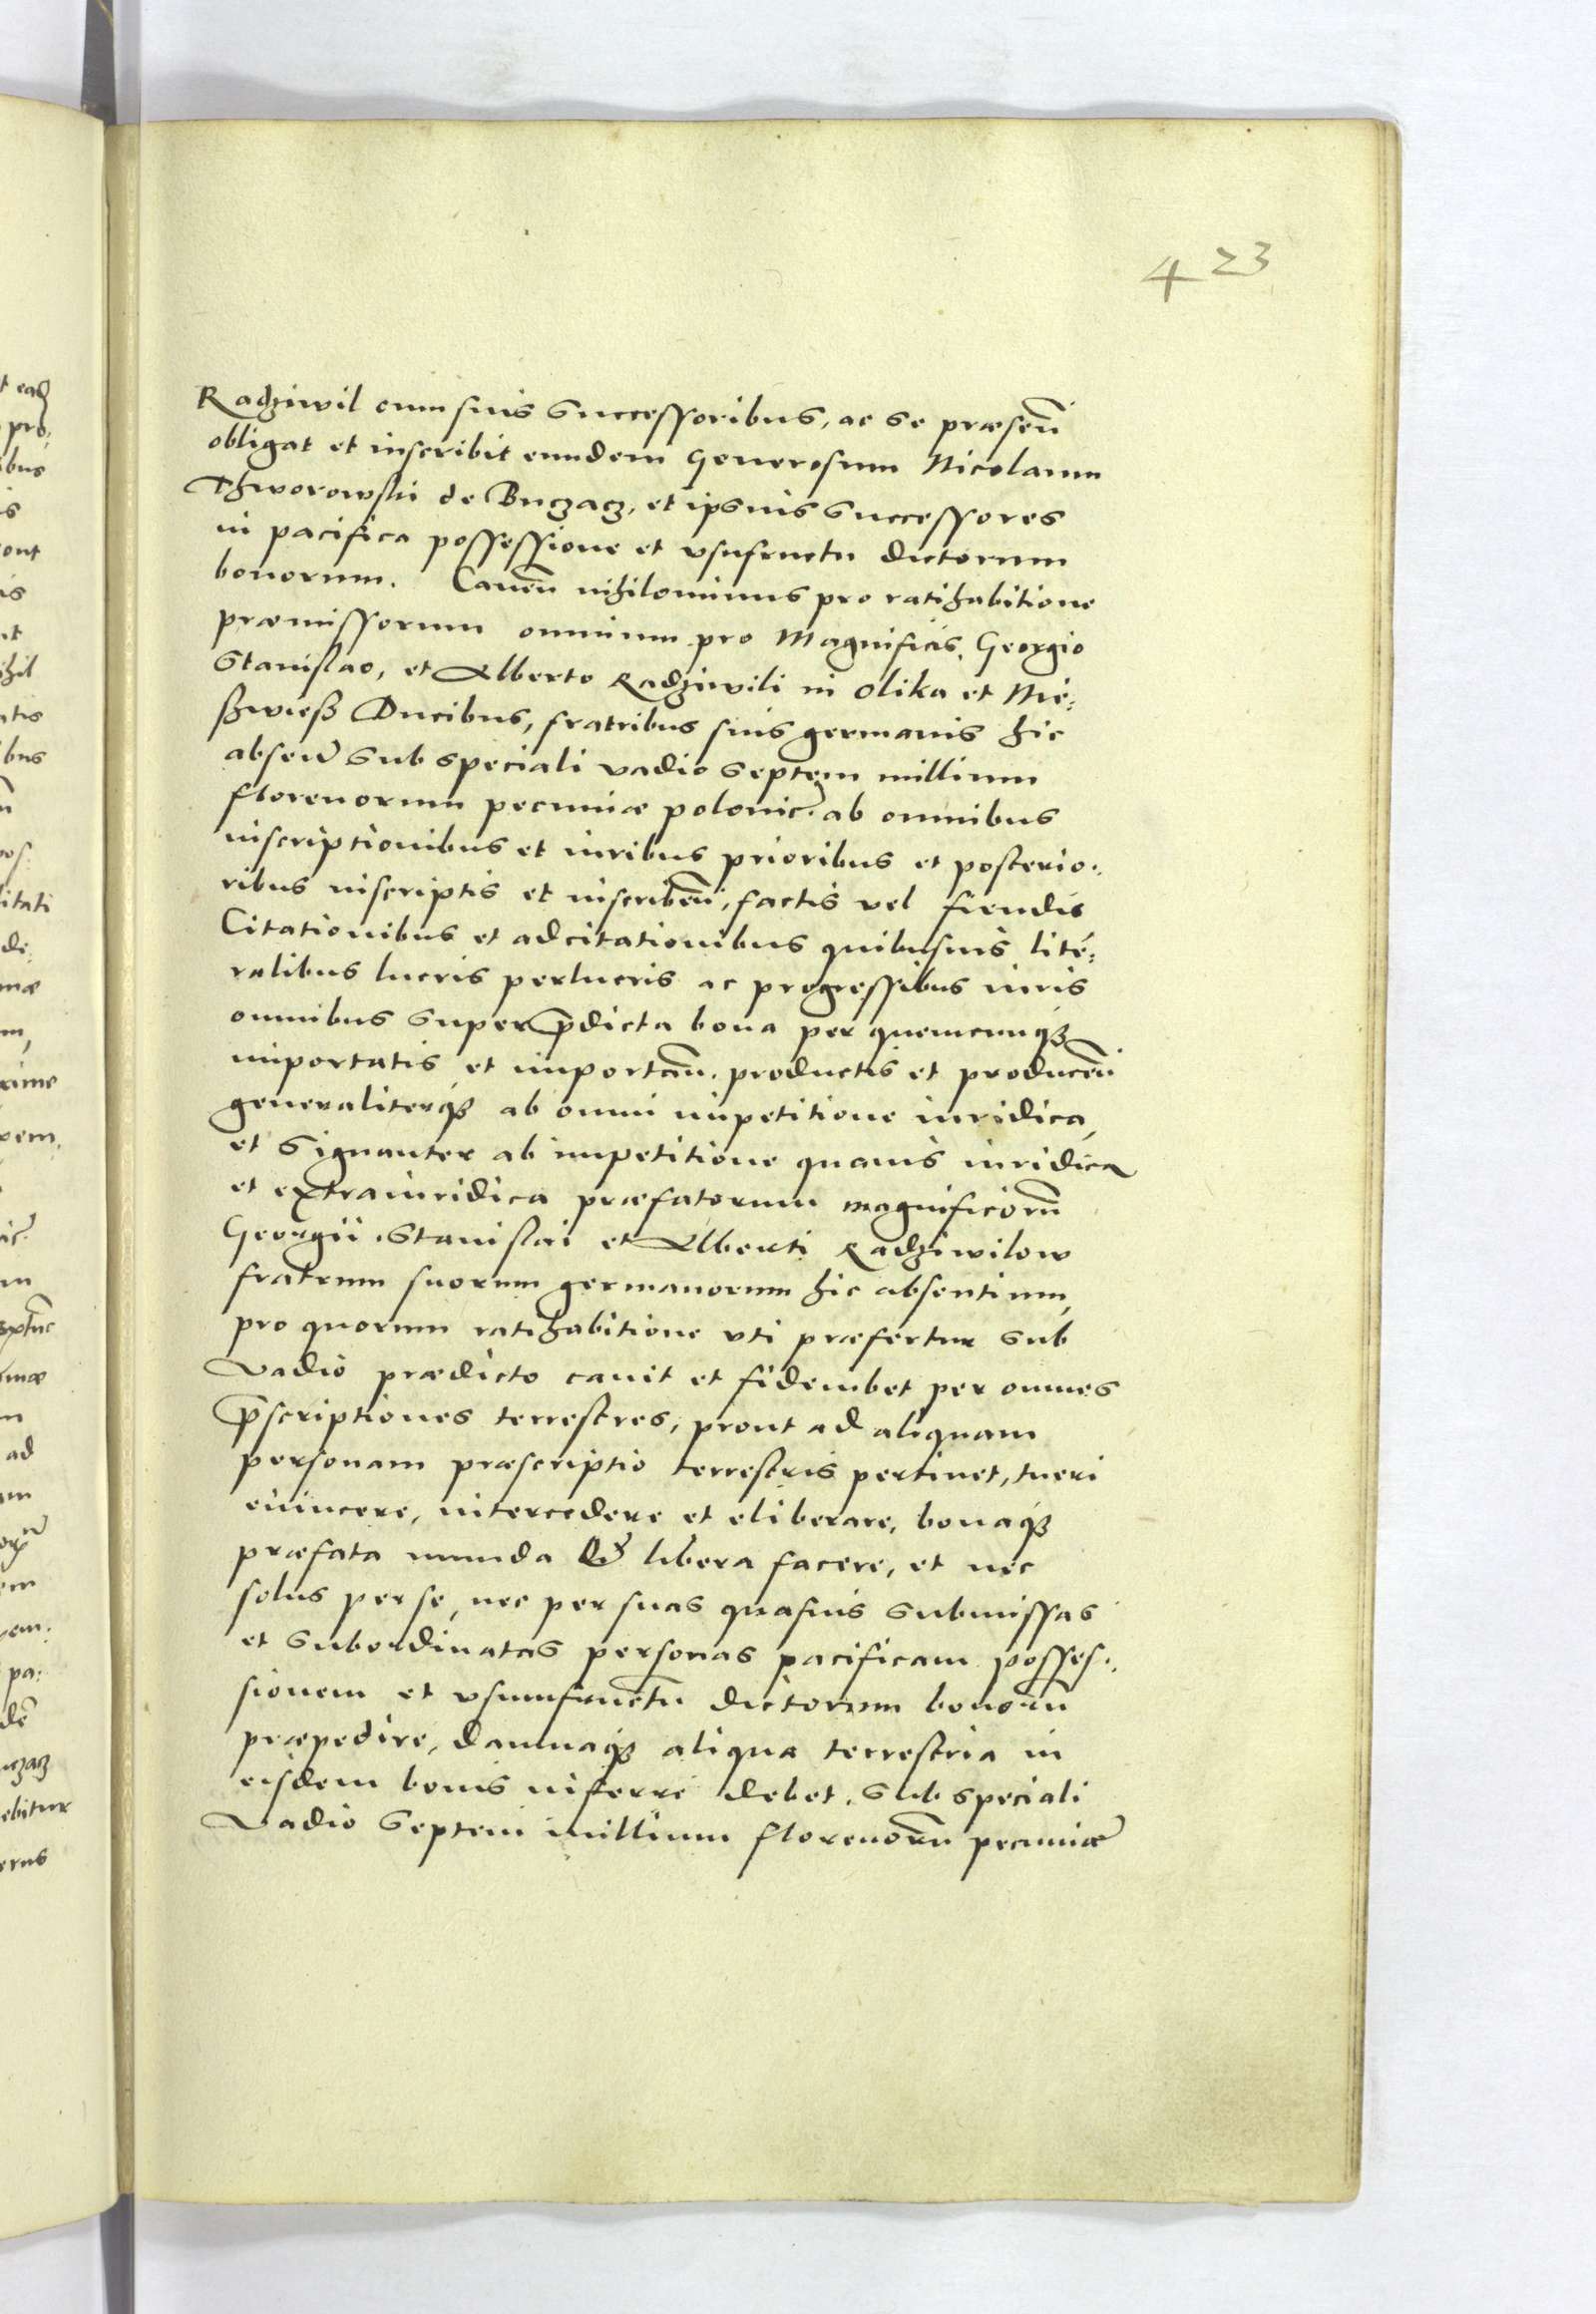 423
Radziwil cum suis successoribus, ac se praesen̄
obligat et inscribit eundem Generosum Nicolaum
Thworowski de Buczacz, et ipsius successores
in pacifica possessione et vsufructu dictorum
bonorum. Cauen̄ nihilominus pro ratihabitione
praemissorum omnium pro Magnificis, Georgio
Stanislao, et Alberto Radziwili in Olika et Nie:
ßwieß Ducibus, fratribus suis germanis hic
absen̄ sub speciali vadio septem millium
florenorum pecuniae polonic. ab omnibus
inscriptionibus et iuribus prioribus et posterio:
ribus inscriptis et inscriben̄, factis vel fiendis
Citationibus et adcitationibus quibusuis lite:
ralibus lucris perlucris ac progressibus iuris
omnibus super p̄dicta bona per quemcunqꝫ
importatis et importan̄. productis et producen̄
generaliterqꝫ ab omni impetitione iuridica,
et signanter ab impetitione quauis iuridica
et extraiuridica praefatorum magnificorū
Georgii. Stanislai et Alberti Radziwilow
fratrum suorum germanorum hic absentium,
pro quorum ratihabitione vti praefertur sub
vadio praedicto cauit et fideiubet per omnes
p̄scriptiones terrestres, prout ad aliquam
personam praescriptio terrestris pertinet, tueri
euincere, intercedere et eliberare, bonaqꝫ
praefata munda & libera facere, et nec
solus per se, nec per suas quasuis submissas
et subordinatas personas pacificam posses:
sionem et vsumfructū dictorum bonorū
praepedire, damnaqꝫ aliqua terrestria in
eisdem bonis inferre debet. sub speciali
Vadio septem millium florenorū pecuniae